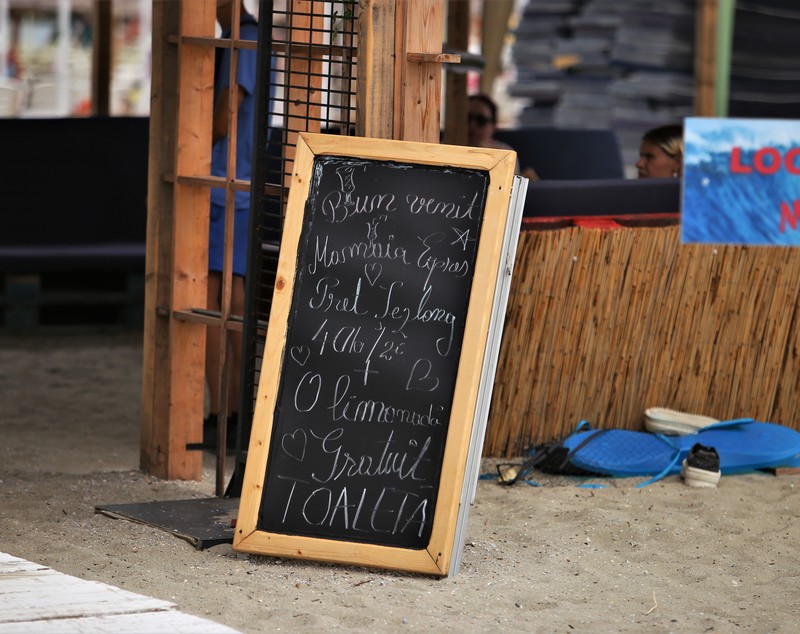 Bun venit
Mamaia Expres
Pret Sezlong
/zi
+ B
O limonadă
Gratuit
TOALETA
LOC
N